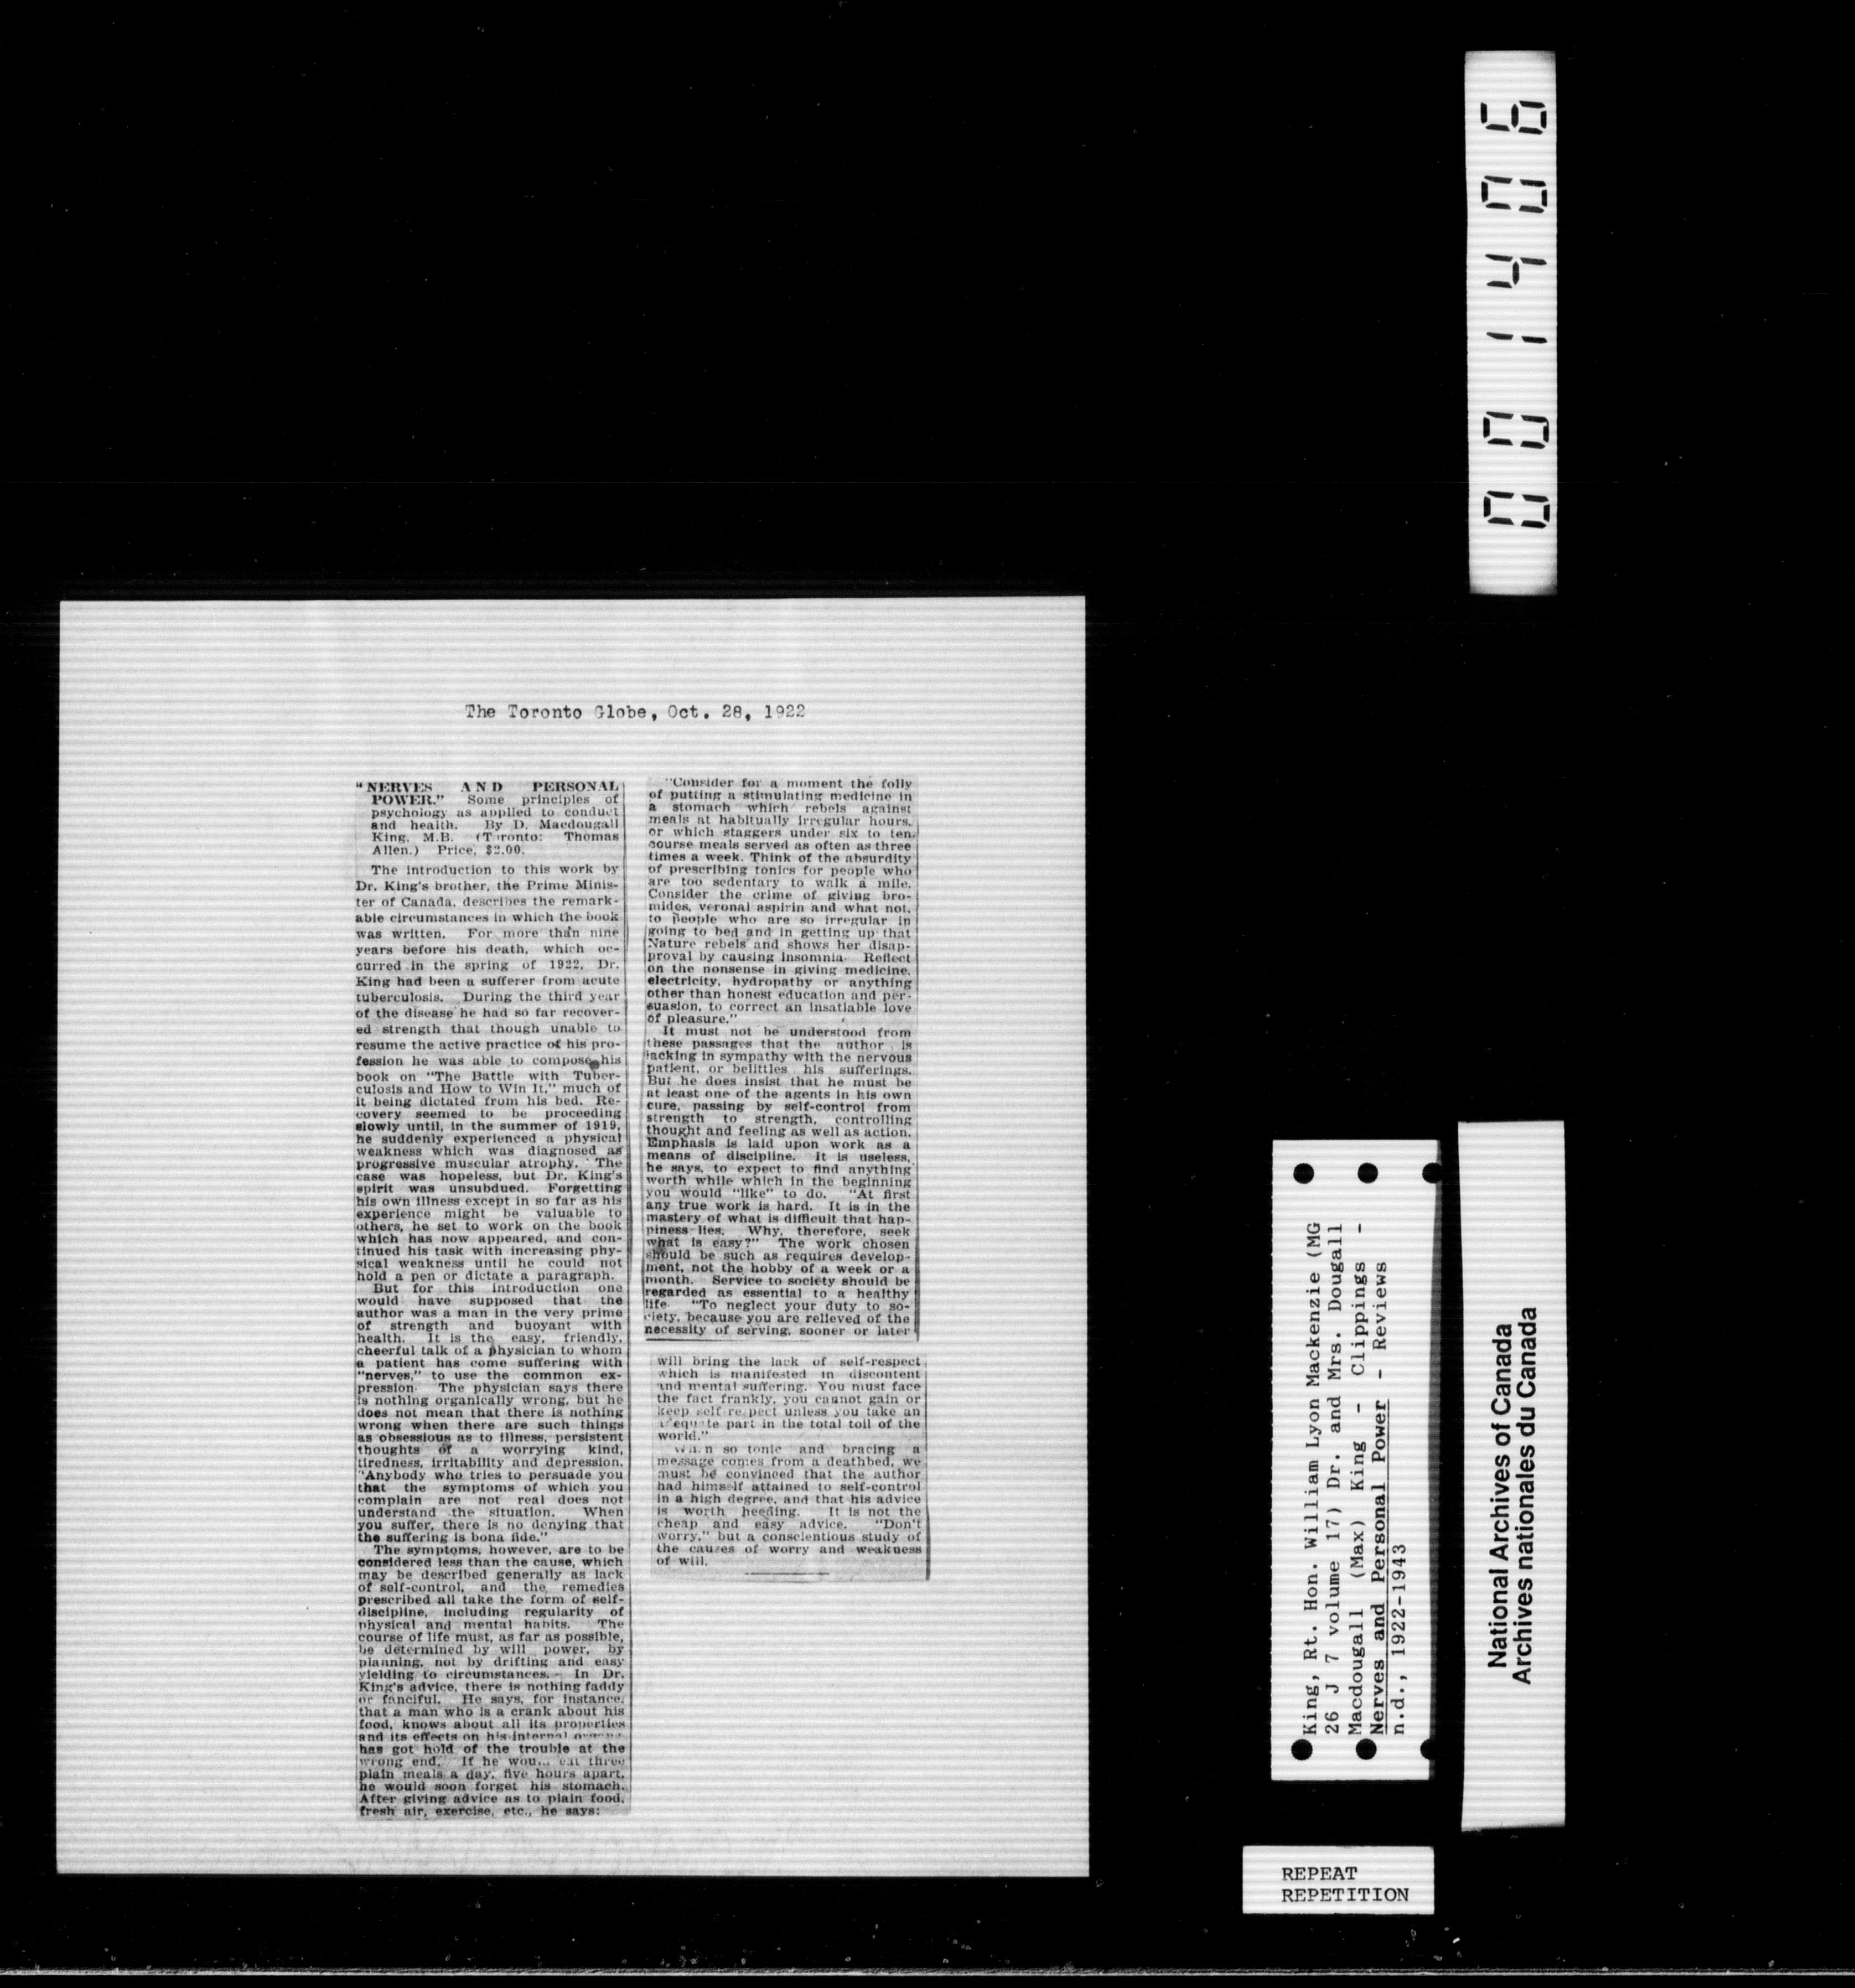 The Toronto Globe, Oct. 28, 1922
"NERVES AND PERSONAL
POWER." Some principles of
psychology as applied to conduct
and health. By D. Macdougall
King, M.B. (Toronto: Thomas
Allen.) Price, $2.00.
The introduction to this work by
Dr. King's brother, the Prime Minis-
ter of Canada, describes the remark-
able circumstances in which the book
was written. For more than nine
years before his death, which oc-
curred in the spring of 1922, Dr.
King had been a sufferer from acute
tuberculosis. During the third year
of the disease he had so far recover-
ed strength that though unable to
resume the active practice of his pro-
fession he was able to compose his
book on "The Battle with Tuber-
culosis and How to Win It," much of
it being dictated from his bed. Re-
covery seemed to be proceeding
slowly until, in the summer of 1919,
he suddenly experienced a physical
weakness which was diagnosed as
progressive muscular atrophy. The
case was hopeless, but Dr. King's
spirit was unsubdued. Forgetting
his own illness except in so far as his
experience might be valuable to
others, he set to work on the book
which has now appeared, and con-
tinued his task with increasing phy-
sical weakness until he could not
hold a pen or dictate a paragraph.
But for this introduction one
would have supposed that the
author was a man in the very prime
of strength and buoyant with
health. It is the easy, friendly,
cheerful talk of a physician to whom
a patient has come suffering with
"nerves," to use the common ex-
pression. The physician says there
is nothing organically wrong, but he
does not mean that there is nothing
wrong when there are such things
as obsessions as to illness, persistent
thoughts of a worrying kind,
tiredness, irritability and depression.
"Anybody who tries to persuade you
that the symptoms of which you
complain are not real does not
understand the situation. When
you suffer, there is no denying that
the suffering is bona fide."
The symptoms, however, are to be
considered less than the cause, which
may be described generally as lack
of self-control, and the remedies
prescribed all take the form of self-
discipline, including regularity of
physical and mental habits. The
course of life must, as far as possible,
be determined by will power, by
planning, not by drifting and easy
yielding to circumstances. In Dr.
King's advice, there is nothing faddy
or fanciful. He says, for instance,
that a man who is a crank about his
food, knows about all its properties
and its effects on his internal
has got hold of the trouble at the
wrong end. If he eat three
plain meals a day, five hours apart,
he would soon forget his stomach.
After giving advice as to plain food,
fresh air, exercise, etc., he says:
"Consider for a moment the folly
of putting a stimulating medicine in
a stomach which rebels against
meals at habitually irregular hours,
or which staggers under six to ten
course meals served as often as three
times a week. Think of the absurdity
of prescribing tonics for people who
are too sedentary to walk a mile.
Consider the crime of giving bro-
mides, veronal aspirin and what not,
to people who are so irregular in
going to bed and in getting up that
Nature rebels and shows her disap-
proval by causing insomnia. Reflect
on the nonsense in giving medicine,
electricity, hydropathy or anything
other than honest education and per-
suasion, to correct an insatiable love
of pleasure."
It must not be understood from
these passages that the author is
lacking in sympathy with the nervous
patient, or belittles his sufferings.
But he does insist that he must be
at least one of the agents in his own
cure, passing by self-control from
strength to strength, controlling
thought and feeling as well as action.
Emphasis is laid upon work as a
means of discipline. It is useless,
he says, to expect to find anything
worth while which in the beginning
you would "like" to do. "At first
any true work is hard. It is in the
mastery of what is difficult that hap-
piness lies. Why, therefore, seek
what is easy?" The work chosen
should be such as requires develop-
ment, not the hobby of a week or a
month. Service to society should be
regarded as essential to a healthy
life. "To neglect your duty to so-
ciety, because you are relieved of the
necessity of serving, sooner or later
will bring the lack of self-respect
which is manifested in discontent
and mental suffering. You must face
the fact frankly, you cannot gain or
keep self-respect unless you take an
adequate part in the total toil of the
world."
When so tonic and bracing a
message comes from a deathbed, we
must be convinced that the author
had himself attained to self-control
in a high degree, and that his advice
is worth heeding. It is not the
cheap and easy advice. "Don't
worry," but a conscientious study of
the causes of worry and weakness
of will.
001406
King, Rt. Hon. William Lyon Mackenzie (MG
26 J 7 volume 17) Dr. and Mrs. Dougall
Macdougall (Max) King - Clippings -
Nerves and Personal Power - Reviews -
n.d., 1922-1943
National Archives of Canada
Archives nationales du Canada
REPEAT
REPETITION